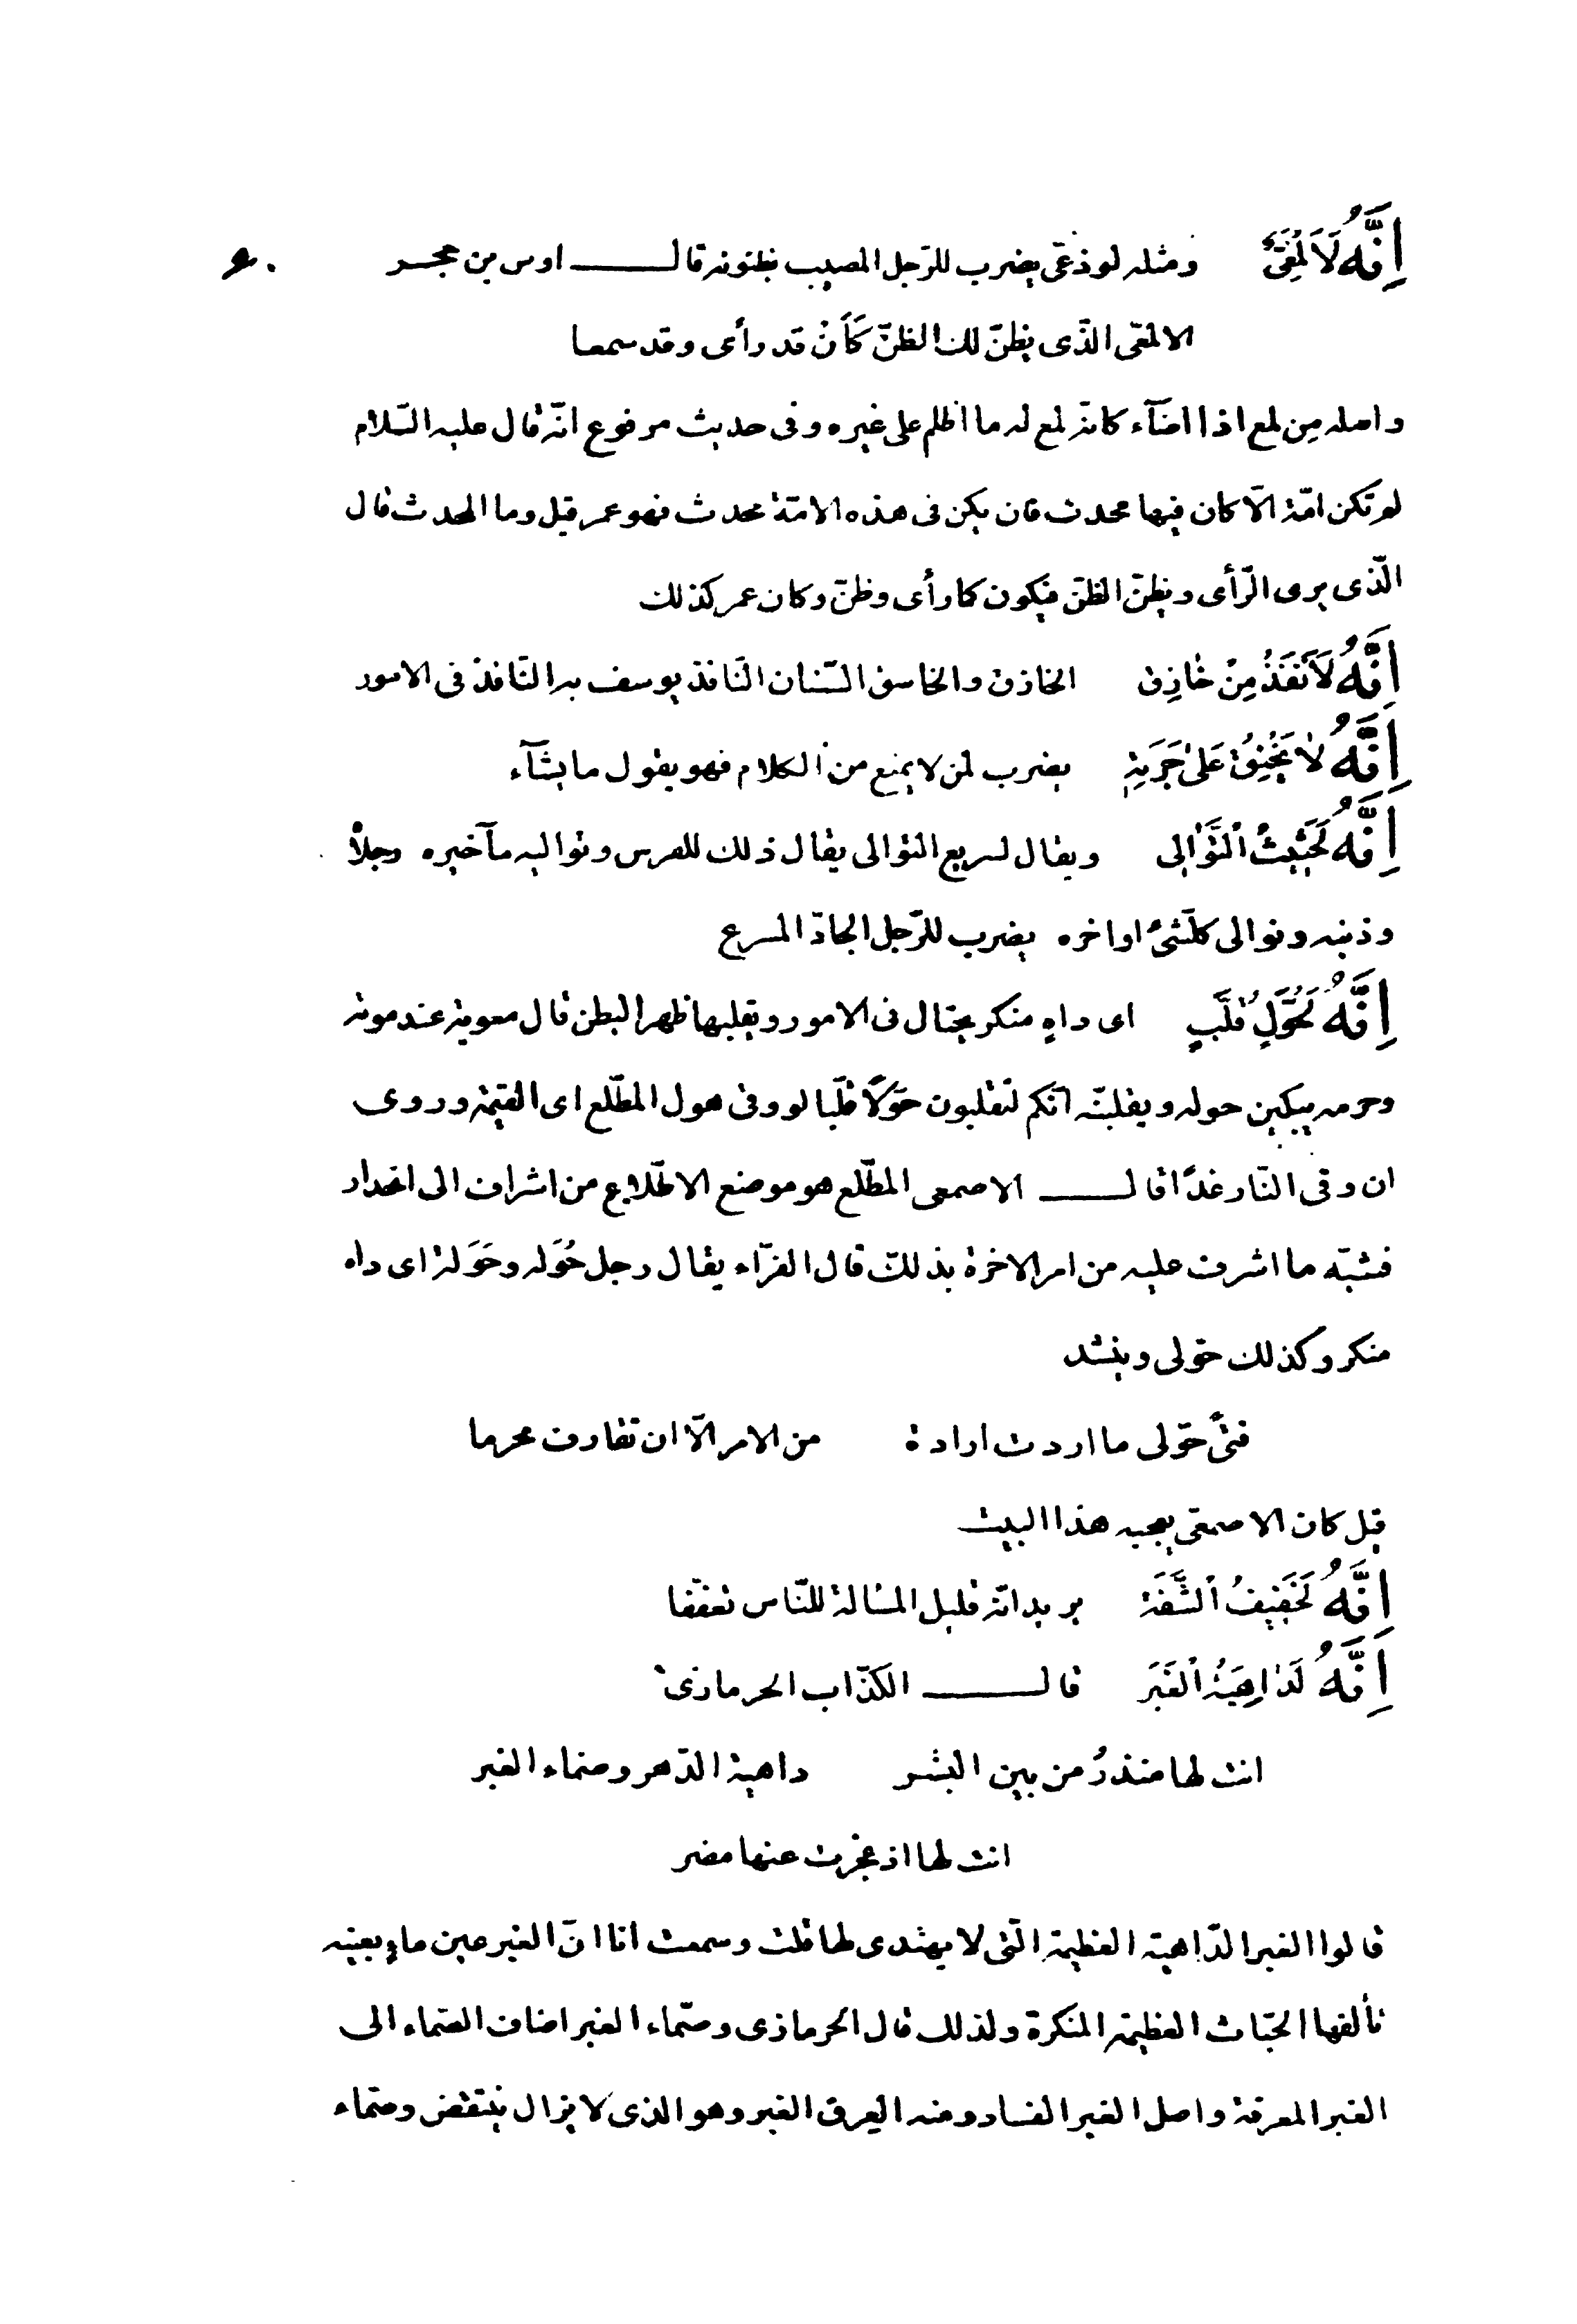 اِنَّهُ لَاَلْمَعِىٌّ ومثله لوذعىّ يضرب للرّجل المصيب بظنونه قال اوس بن حجر ٦٠
الالمعىّ الذّى يظنّ لك الظنّ كَأَنْ قد رأى وقد سمعا
واصله مِن لمع اذا اضآء كانّه لمع له ما اظلم على غيره وفى حديث مرفوع انّه قال عليه السّلام
لم تكن امّة الّا كان فيها محدث فان يكن فى هذه الامّة محدث فهو عمر قيل وما المحدث قال
الّذى يرى الرّأى ويظنّ الظنّ فيكون كما رأى وظنّ وكان عمر كذلك
اِنَّهُ لَاَنْفَذُ مِنْ خٰازِقٍ الخازق والخاسق السّنان النّافذ يوسف به النّافذ فى الامور
اِنَّهُ لاٰ يَخْنِقُ عَلىٰ جَرَبِهِ يضرب لمن لا يمنع من الكلام فهو يقول ما يشآء
اِنَّهُ لَحَثِيثُ اْلتَّوٰالِى ويقال لسريع التوالى يقال ذلك للفرس وتواليه مآخيره رجلاْ
وذنبه وتوالى كلّشىءٍ اواخره يضرب للرّجل الجادّ المسرع
اِنَّهُ لَحُوَّلٌ قُلَّبٌ اى داهٍ منكر يحتال فى الامور ويقلبها ظهر البطن قال معوية عند موته
وحرمه يبكين حوله ويقلبنّه انّكم لتقلبون حوّلًا قلّبا لو وقى هول المطّلع اى القيمة وروى
ان وقى النّار غدًا قال الاصمعى المطّلع هو موضع الاطّلاع من اشراف الى انحدار
فشبّه ما اشرف عليه من امر الاخرة بذلك قال الفرّاء يقال رجل حُوَله وحَوَلة اى داه
منكر وكذلك حوّلى وينشد
فتىً حوّلى ما اردت اراده من الامر الّا ان تقارف محرما
قيل كان الاصمعىّ يعجبه هذا البيت
اِنَّهُ لَخَفِيفُ اْلشَّفَةِ يريد انّه قليل المسالة للنّاس تعفّفا
اِنَّهُ لَدٰاهِيَةُ اْلغَبَرِ قال الكذّاب الحرمازىّ
انت لها منذرُ من بين البشر داهية الدّهر وصمّاء الغبر
انت لها اذ عجزت عنها مضر
قالوا الغبر الدّاهية العظيمة الّتى لا يهتدى لها قلت وسمعت انا انّ الغبر عين ماءٍ بعينه
تألفها الحيّات العظيمة المنكرة ولذلك قال الحرمازى وصمّاء الغبر اضاف الصّماء الى
الغبر المعرفة واصل الغبر الفساد ومنه العِرق الغبر وهو الذى لا يزال ينتقض وصمّاء